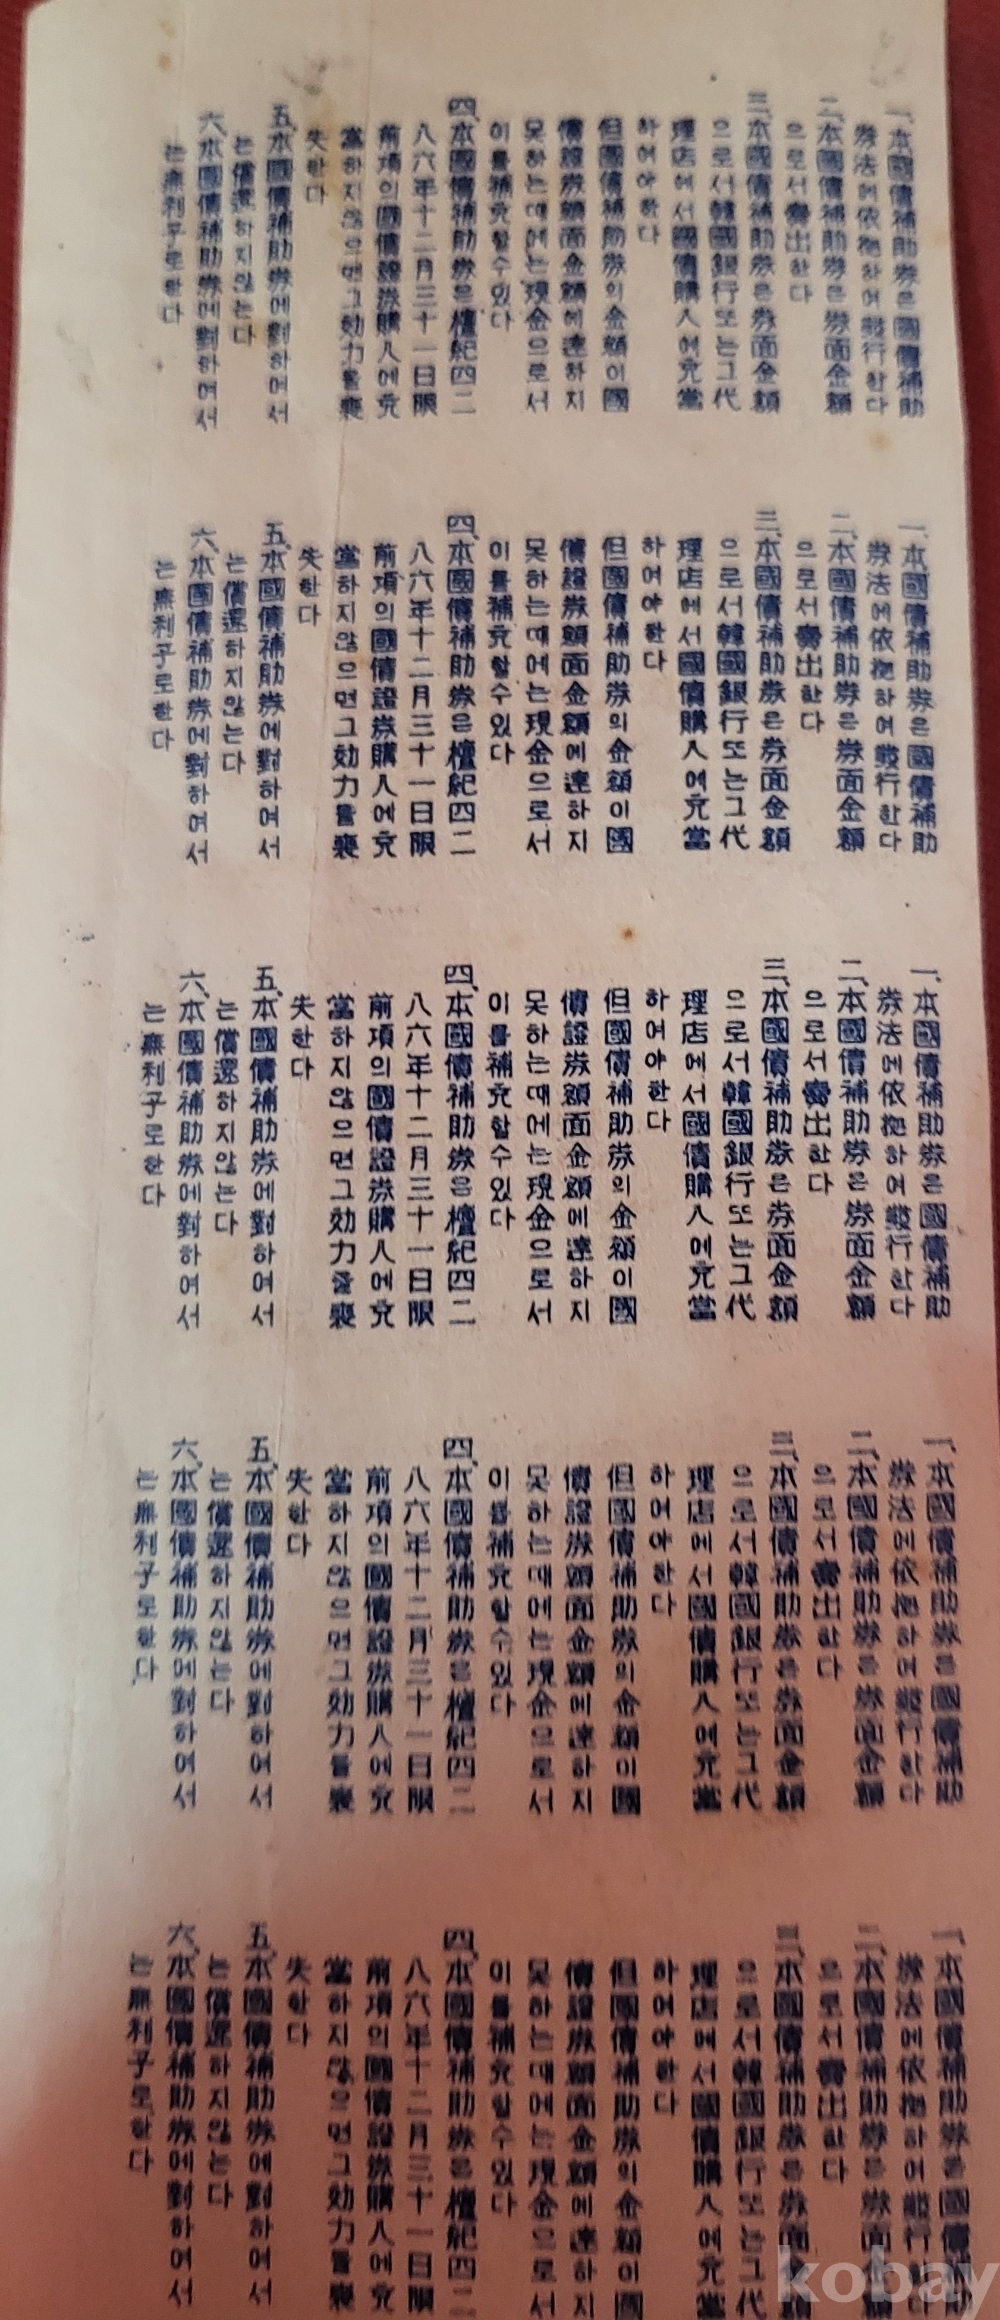 一、本國債補助券은國債補助
券法에依據하여發行한다
二、本國債補助券은券面金額
으로서賣出한다
三、本國債補助券은券面金額
으로서韓國銀行또는그代
理店에서國債購入에充當
하여야한다
但國債補助券의金額이國
債證券額面金額에達하지
못하는때에는現金으로서
이를補充할수있다
四、本國債補助券은檀紀四二
八六年十二月三十一日限
前項의國債證券購入에充
當하지않으면그効力을喪
失한다
五、本國債補助券에對하여서
는償還하지않는다
六、本國債補助券에對하여서
는無利子로한다
一、本國債補助券은國債補助
券法에依據하여發行한다
二、本國債補助券은券面金額
으로서賣出한다
三、本國債補助券은券面金額
으로서韓國銀行또는그代
理店에서國債購入에充當
하여야한다
但國債補助券의金額이國
債證券額面金額에達하지
못하는때에는現金으로서
이를補充할수있다
四、本國債補助券은檀紀四二
八六年十二月三十一日限
前項의國債證券購入에充
當하지않으면그効力을喪
失한다
五、本國債補助券에對하여서
는償還하지않는다
六、本國債補助券에對하여서
는無利子로한다
一、本國債補助券은國債補助
券法에依據하여發行한다
二、本國債補助券은券面金額
으로서賣出한다
三、本國債補助券은券面金額
으로서韓國銀行또는그代
理店에서國債購入에充當
하여야한다
但國債補助券의金額이國
債證券額面金額에達하지
못하는때에는現金으로서
이를補充할수있다
四、本國債補助券은檀紀四二
八六年十二月三十一日限
前項의國債證券購入에充
當하지않으면그効力을喪
失한다
五、本國債補助券에對하여서
는償還하지않는다
六、本國債補助券에對하여서
는無利子로한다
一、本國債補助券은國債補助
券法에依據하여發行한다
二、本國債補助券은券面金額
으로서賣出한다
三、本國債補助券은券面金額
으로서韓國銀行또는그代
理店에서國債購入에充當
하여야한다
但國債補助券의金額이國
債證券額面金額에達하지
못하는때에는現金으로서
이를補充할수있다
四、本國債補助券은檀紀四二
八六年十二月三十一日限
前項의國債證券購入에充
當하지않으면그効力을喪
失한다
五、本國債補助券에對하여서
는償還하지않는다
六、本國債補助券에對하여서
는無利子로한다
一、本國債補助券은國債
券法에依據하여發行한다
二、本國債補助券은券面金
으로서賣出한다
三、本國債補助券은券面金額
으로서韓國銀行또는그代
理店에서國債購入에充當
하여야한다
但國債補助券의金額이國
債證券額面金額에達하지
못하는때에는現金으로서
이를補充할수있다
四、本國債補助券은檀紀四二
八六年十二月三十一日限
前項의國債證券購入에充
當하지않으면그効力을喪
失한다
五、本國債補助券에對하여서
는償還하지않는다
六、本國債補助券에對하여서
는無利子로한다
kobay